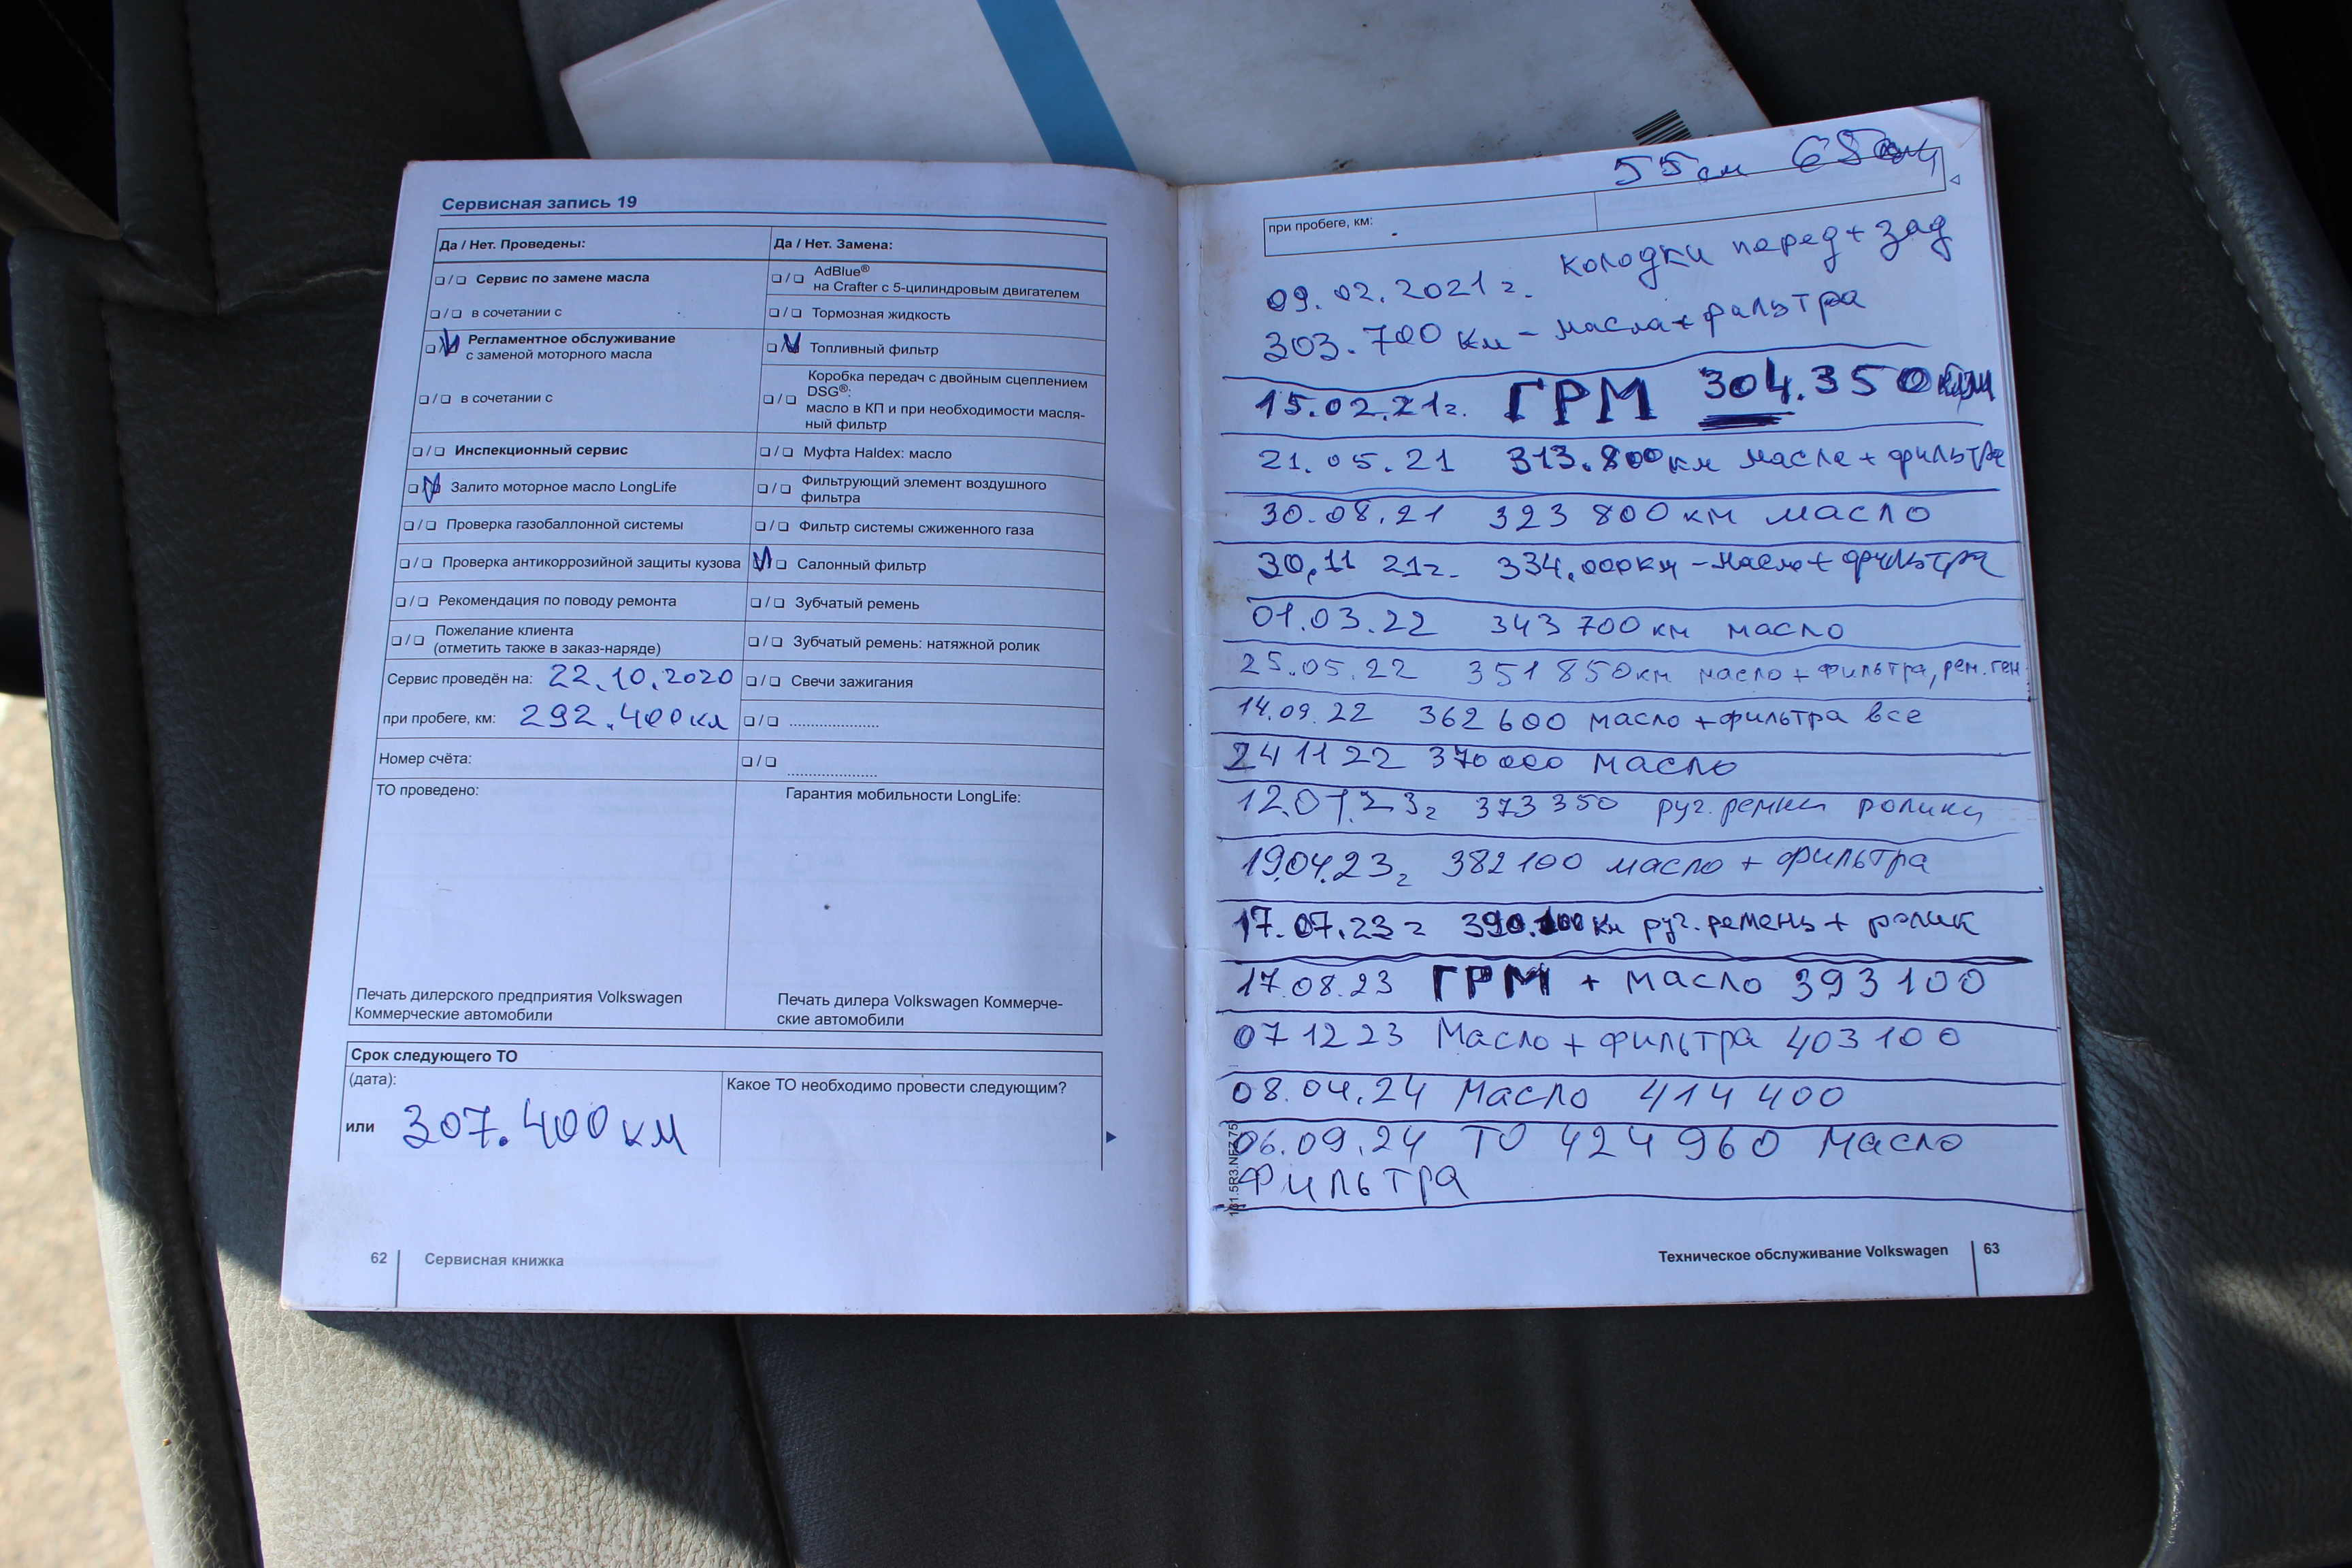 Сервисная запись 19
Да / Нет. Проведены:
❏ / ❏ Сервис по замене масла
❏ / ❏ в сочетании с
❏ / ❏ Регламентное обслуживание
с заменой моторного масла
❏ / ❏ в сочетании с
❏ / ❏ Инспекционный сервис
❏ / ❏ Залито моторное масло LongLife
❏ / ❏ Проверка газобаллонной системы
❏ / ❏ Проверка антикоррозийной защиты кузова
❏ / ❏ Рекомендация по поводу ремонта
❏ / ❏ Пожелание клиента
(отметить также в заказ-наряде)
Сервис проведён на: 22.10.2020
при пробеге, км: 292.400км
Номер счёта:
ТО проведено:
Печать дилерского предприятия Volkswagen
Коммерческие автомобили
Да / Нет. Замена:
❏ / ❏ AdBlue®
на Crafter с 5-цилиндровым двигателем
❏ / ❏ Тормозная жидкость
❏ / ❏ Топливный фильтр
❏ / ❏ Коробка передач с двойным сцеплением
DSG®:
масло в КП и при необходимости масля-
ный фильтр
❏ / ❏ Муфта Haldex: масло
❏ / ❏ Фильтрующий элемент воздушного
фильтра
❏ / ❏ Фильтр системы сжиженного газа
❏ / ❏ Салонный фильтр
❏ / ❏ Зубчатый ремень
❏ / ❏ Зубчатый ремень: натяжной ролик
❏ / ❏ Свечи зажигания
❏ / ❏ .....................
❏ / ❏ .....................
Гарантия мобильности LongLife:
Печать дилера Volkswagen Коммерче-
ские автомобили
Срок следующего ТО
(дата):
или 307.400км
Какое ТО необходимо провести следующим?
62 Сервисная книжка
55см
при пробеге, км:
09.02.2021г. колодки перед+зад
303.700км - масла+фильтра
15.02.21г. ГРМ 304.350
21.05.21 313.800км масле + фильтра
30.08.21 323 800км масло
30,11 21г. 334.000км - масло+фильтра
01.03.22 343 700км масло
25.05.22 351 850км масло + фильтра, рем. ген.
14.09.22 362 600 масло + фильтра все
24 11 22 370 000 масло
12.01.23г 373 350 руч. ремни ролики
19.04.23г 382100 масло + фильтра
17.07.23г 390.100км руч. ремень + ролик
17.08.23 ГРМ + масло 393100
07 12 23 Масло + фильтра 403100
08.04.24 Масло 414 400
06.09.24 ТО 424960 Масло
Фильтра
Техническое обслуживание Volkswagen 63